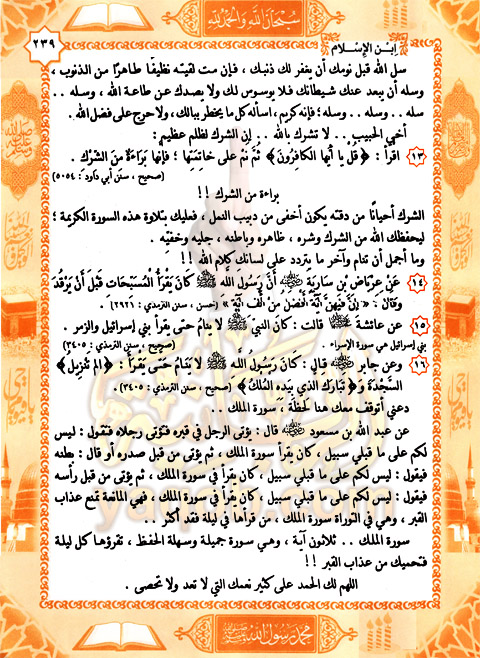 سبحان الله والحمد لله
٢٣٩
اين الإسلام
سل الله قبل نومك أن يغفر لك ذنبك ، فإن مت لقيته نظيفًا طاهرًا من الذنوب ،
وسله أن يبعد عنك شيطانك فلا يوسوس لك ولا يصدك عن طاعة الله ، وسله . .
سله . . وسله . . وسله ؛ فإنه كريم ، اسأله كل ما يخطر ببالك ، ولا حرج على فضل الله .
أخي الحبيب . . لا تشرك بالله . . إن الشرك لظلم عظيم :
١٣ اقرأ : ﴿ قُلْ يَا أَيُّهَا الكَافِرُونَ ﴾ ثُمَّ نَمْ على خاتِمَتِها ؛ فإنها بَرَاءَةٌ مِنَ الشِّرْك .
(صحيح ، سنن أبي داود : ٥٠٥٤)
براءة من الشرك !!
الشرك أحيانًا من دقته يكون أخفى من دبيب النمل ، فعليك بتلاوة هذه السورة الكريمة ؛
ليحفظك الله من الشرك وشره ، ظاهره وباطنه ، جليه وخفيه .
وما أجمل أن تنام وآخر ما يتردد على لسانك كلام الله !!
١٤ عَنْ عِرْبَاضِ بْنِ سَارِيَةَ ﷺ أَنَّ رَسُولَ اللهِ ﷺ كَانَ يَقْرَأُ الْمُسَبِّحَاتِ قَبْلَ أَنْ يَرْقُدَ
وَقَالَ : « إِنَّ فِيهِنَّ آيَةً أَفْضَلُ مِنْ أَلْفِ آيَةٍ » (حسن ، سنن الترمذي : ٢٩٢١) .
١٥ عن عائشة قالت : كان النبي ﷺ لا ينام حتى يقرأ بني إسرائيل والزمر .
بني إسرائيل هي سورة الإسراء . (صحيح ، سنن الترمذي : ٣٤٠٥)
١٦ وعن جابر قال : كَانَ رَسُولُ اللَّهِ ﷺ لَا يَنَامُ حَتَّى يَقْرَأَ : ﴿ الم تَنْزِيلُ ﴾
السَّجْدَةَ وَ﴿ تَبَارَكَ الَّذِي بِيَدِهِ الْمُلْكُ ﴾ (صحيح ، سنن الترمذي : ٣٤٠٥) .
دعني أتوقف معك هنا لحظةً ، سورة الملك . .
عن عبد الله بن مسعود قال : يؤتى الرجل في قبره فتؤتى رجلاه فتقول : ليس
لكم على ما قبلي سبيل ، كان يقرأ سورة الملك ، ثم يؤتى من قبل صدره أو قال : بطنه
فيقول : ليس لكم على ما قبلي سبيل ، كان يقرأ في سورة الملك ، ثم يؤتى من قبل رأسه
فيقول : ليس لكم على ما قبلي سبيل ، كان يقرأ في سورة الملك ، فهي المانعة تمنع عذاب
القبر ، وهي في التوراة سورة الملك ، من قرأها في ليلة فقد أكثر . .
سورة الملك . . ثلاثون آية ، وهي سورة جميلة وسهلة الحفظ ، تقرؤها كل ليلة
فتحميك من عذاب القبر !!
اللهم لك الحمد على كثير نعمك التي لا تعد ولا تحصى .
محمد رسول الله ﷺ